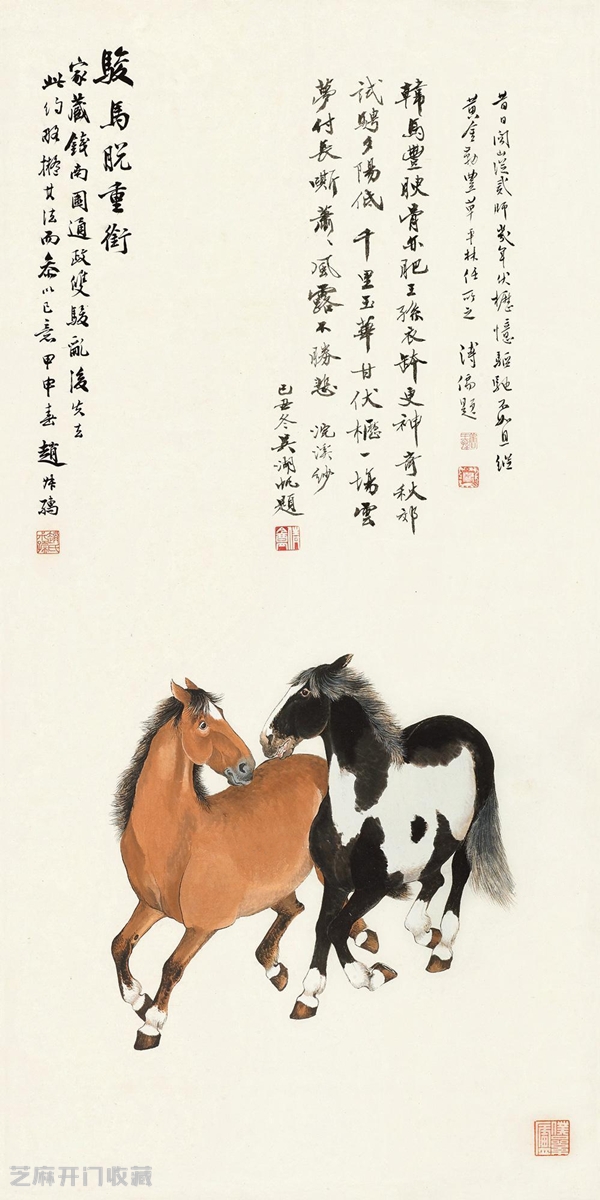 昔日關山從貳師幾年伏櫪憶驅馳不如且縱
黃金勒豐草平林任所之 溥儒題
韓馬豐腴骨亦肥王孫衣缽更神奇秋郊
試騁夕陽低 千里玉華甘伏櫪一場雲
夢付長嘶蕭〻風露不勝悲 浣溪紗
己丑冬吳湖帆題
駿馬脫重銜
家藏錢南園通政雙駿亂後失去
此約略擬其法而參以己意甲申春趙叔孺
芝麻开门收藏